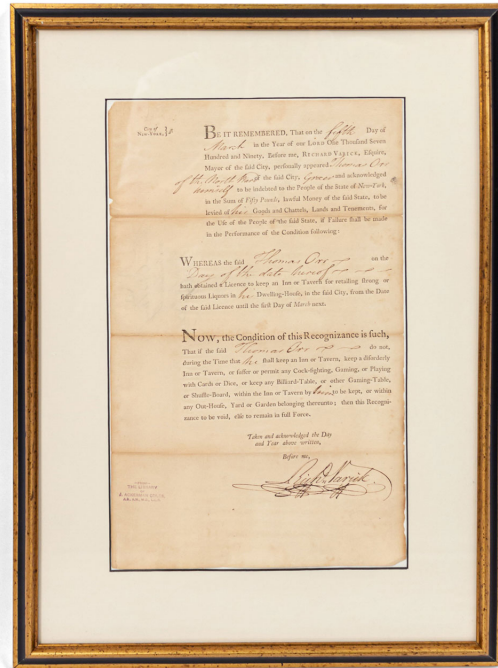 City of
New-York,
BE IT REMEMBERED, That on the fifth Day of
March in the Year of our LORD One Thousand Seven
Hundred and Ninety, Before me, RICHARD VARICK, Esquire,
Mayor of the said City, personally appeared Thomas Orr
of the North Ward of the said City, Grocer and acknowledged
himself to be indebted to the People of the State of New-York,
in the Sum of Fifty Pounds, lawful Money of the said State, to be
levied of his Goods and Chattels, Lands and Tenements, for
the Use of the People of the said State, if Failure shall be made
in the Performance of the Condition following:
WHEREAS the said Thomas Orr on the
Day of the date hereof
hath obtained a Licence to keep an Inn or Tavern for retailing strong or
spirituous Liquors in his Dwelling-House, in the said City, from the Date
of the said Licence until the first Day of March next.
NOW, the Condition of this Recognizance is such,
That if the said Thomas Orr do not,
during the Time that he shall keep an Inn or Tavern, keep a disorderly
Inn or Tavern, or suffer or permit any Cock-fighting, Gaming, or Playing
with Cards or Dice, or keep any Billiard-Table, or other Gaming-Table,
or Shuffle-Board, within the Inn or Tavern by him to be kept, or within
any Out-House, Yard or Garden belonging thereunto; then this Recogni-
zance to be void, else to remain in full Force.
Taken and acknowledged the Day
and Year above written,
Before me,
Richd Varick